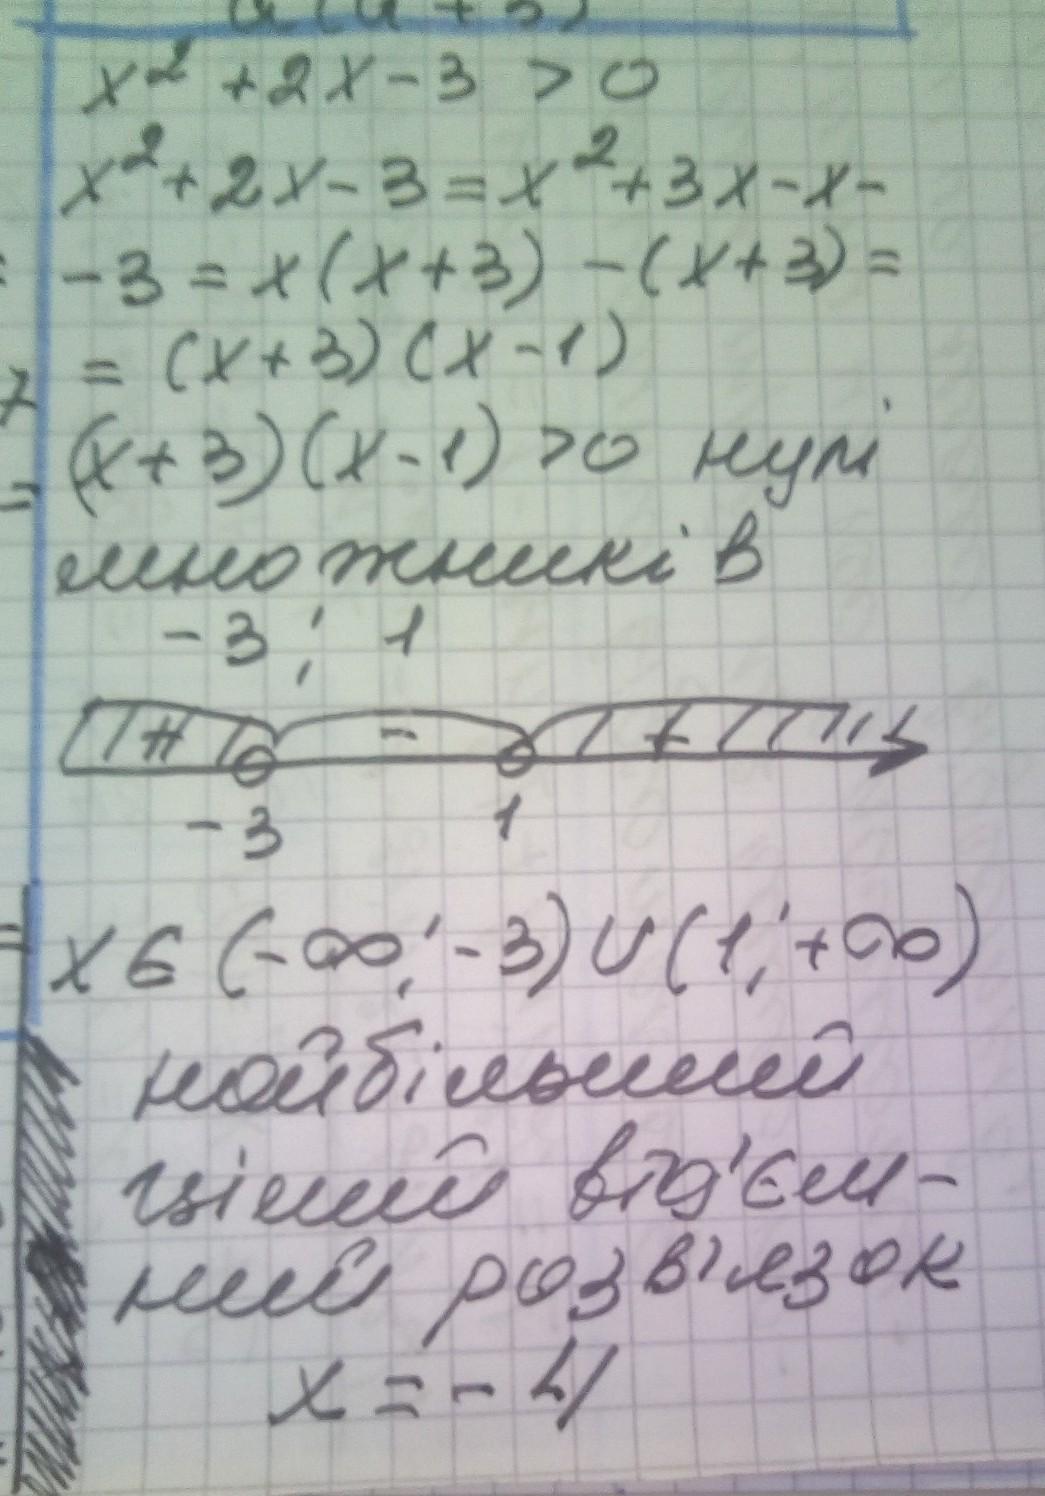 x² + 2x - 3 > 0
x² + 2x - 3 = x² + 3x - x -
- 3 = x (x + 3) - (x + 3) =
= (x + 3) (x - 1)
(x + 3) (x - 1) > 0 нулі
множників
- 3 ; 1
+ - +
- 3 1
x ∈ (- ∞; - 3) ∪ (1; + ∞)
найбільший
цілий від'єм-
ний розв'язок
x = - 4